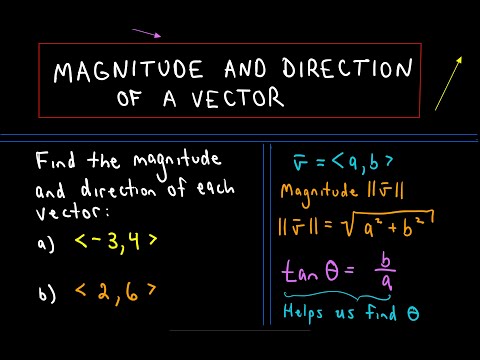 MAGNITUDE AND DIRECTION
OF A VECTOR
Find the magnitude
and direction of each
vector:
a) <-3,4>
b) <2,6>
v̄ = <a,b>
Magnitude ||v̄||
||v̄|| = √(a²+b²)
tan θ = b/a
Helps us find θ